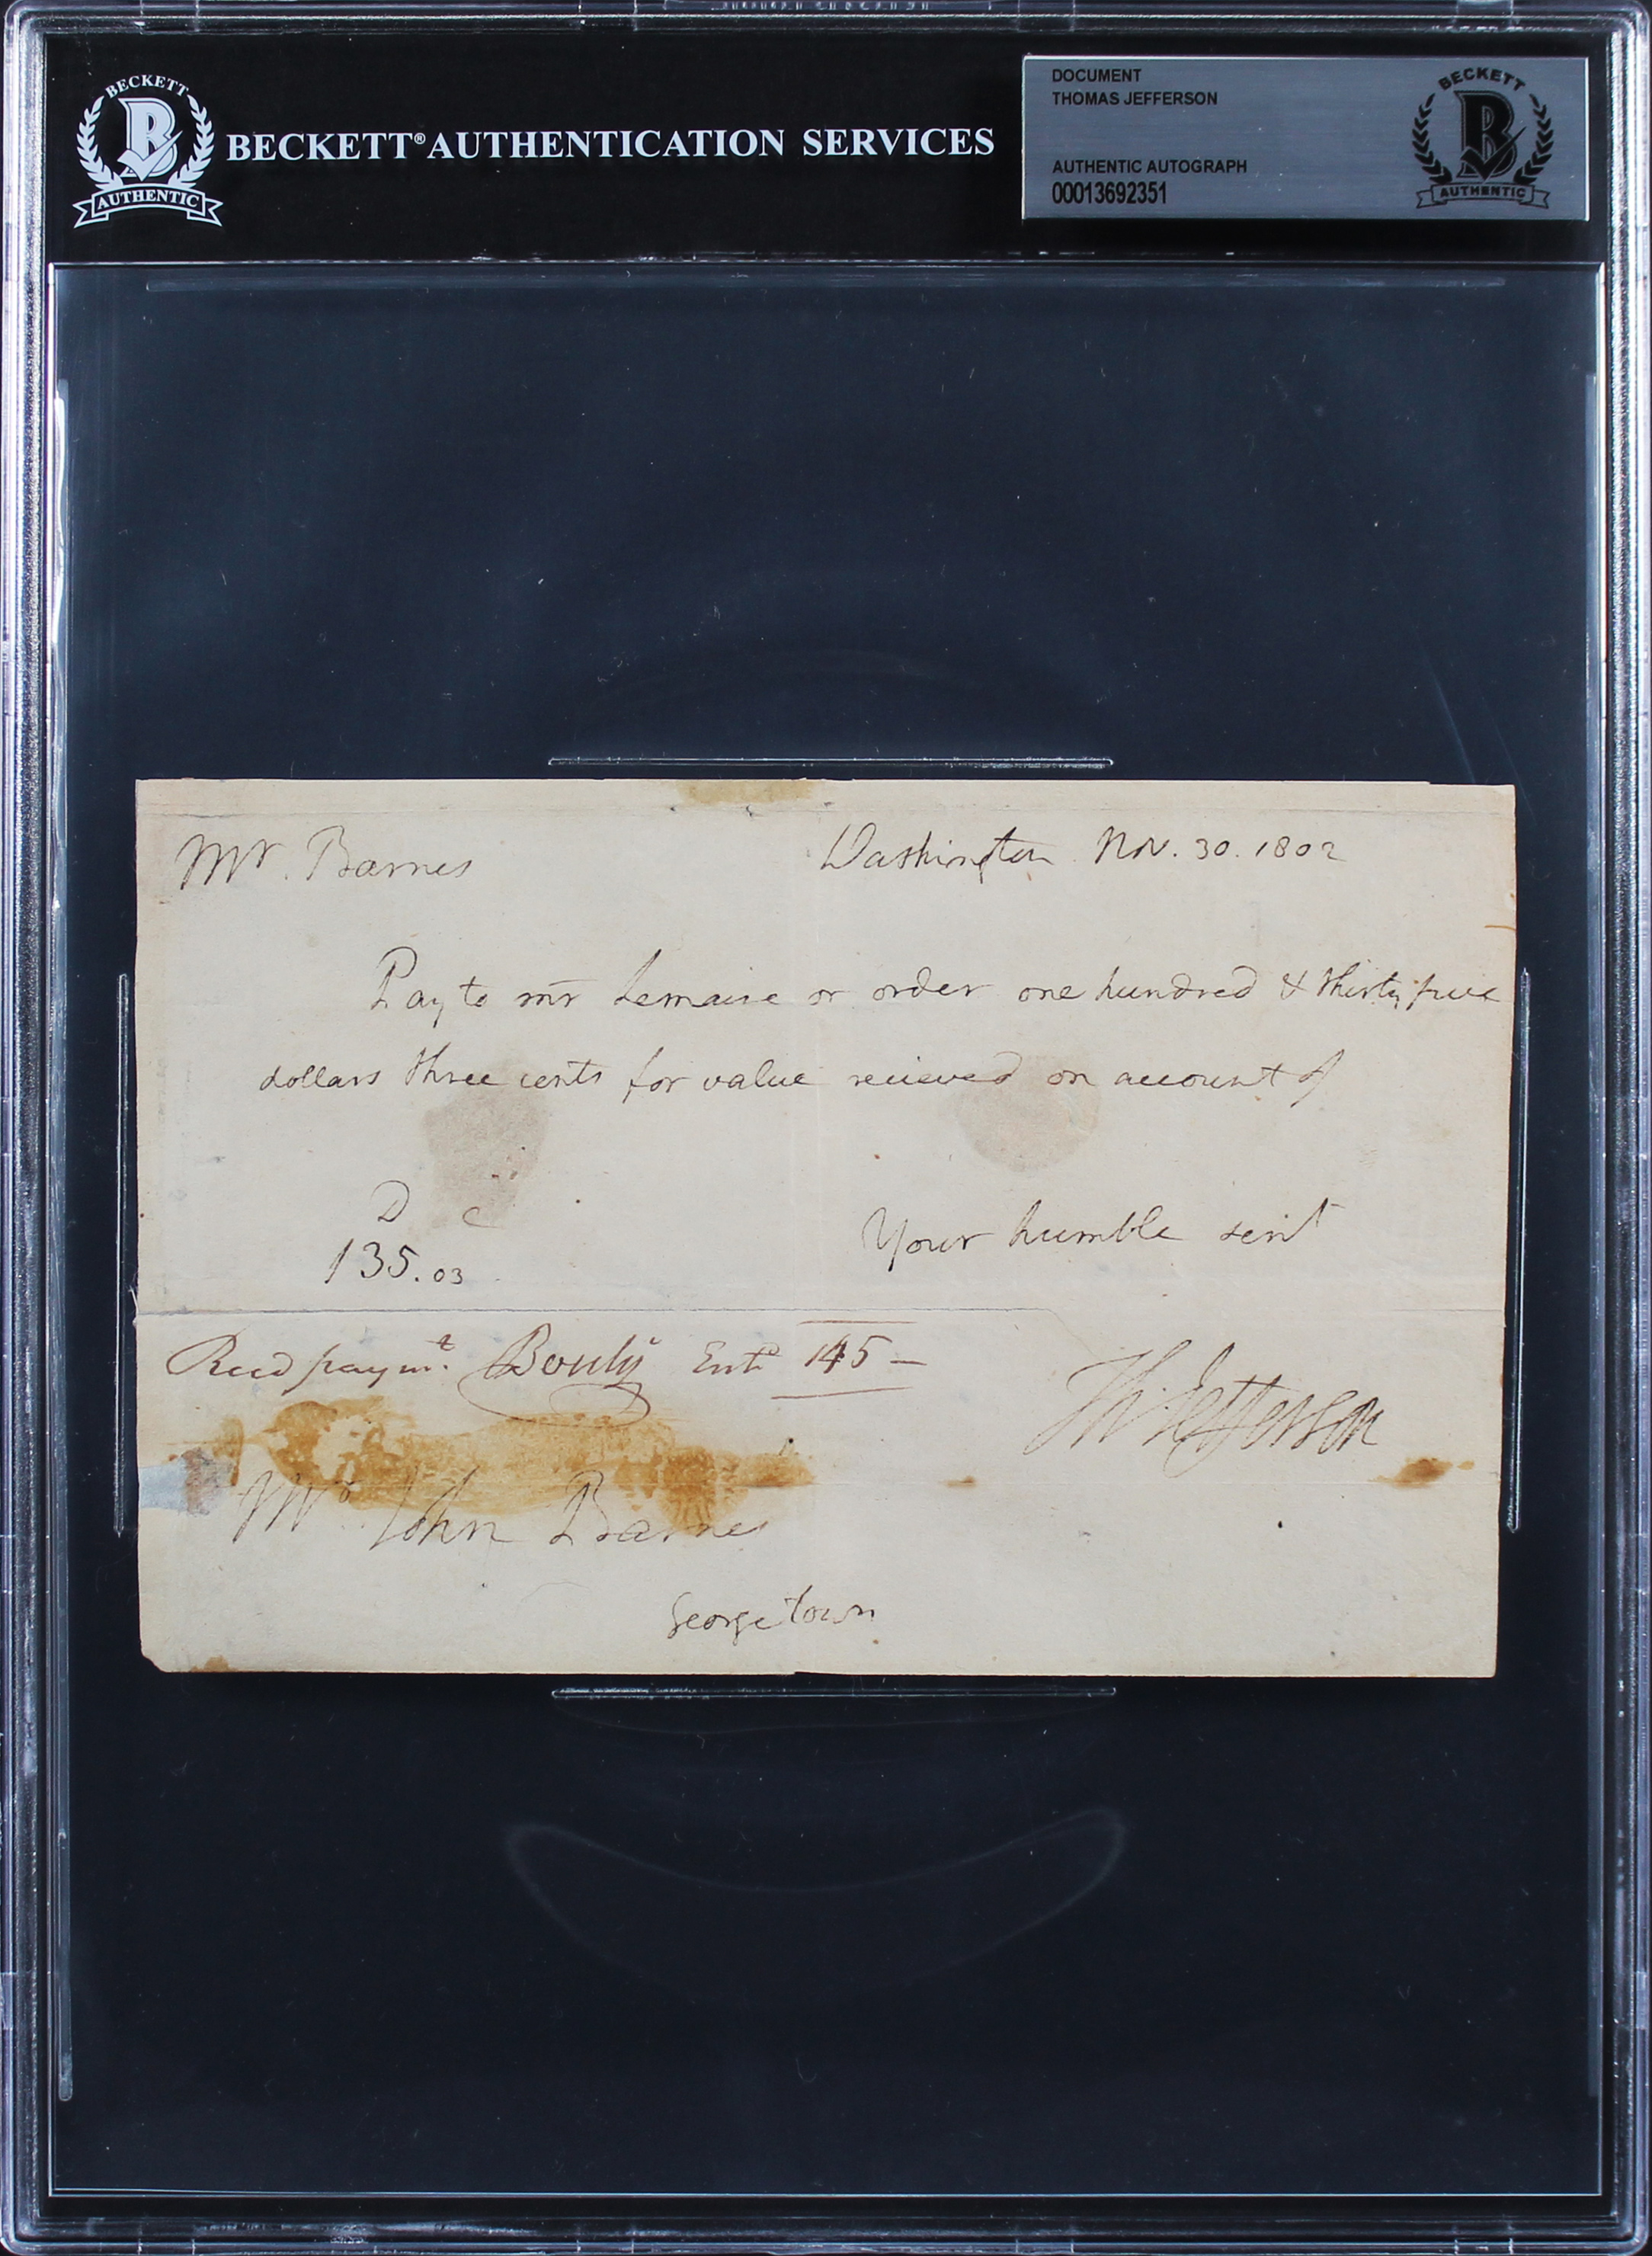 BECKETT
B
AUTHENTIC
BECKETT® AUTHENTICATION SERVICES
DOCUMENT
THOMAS JEFFERSON
AUTHENTIC AUTOGRAPH
00013692351
BECKETT
B
AUTHENTIC
Mr. Barnes
Washington Nov. 30. 1802
Pay to mr Lemaire or order one hundred & thirty five
dollars three cents for value recieved on account of
D c
135.03
Your humble servt
Recd paymt. Entd 145 —
Th: Jefferson
Mr. John Barnes
Georgetown